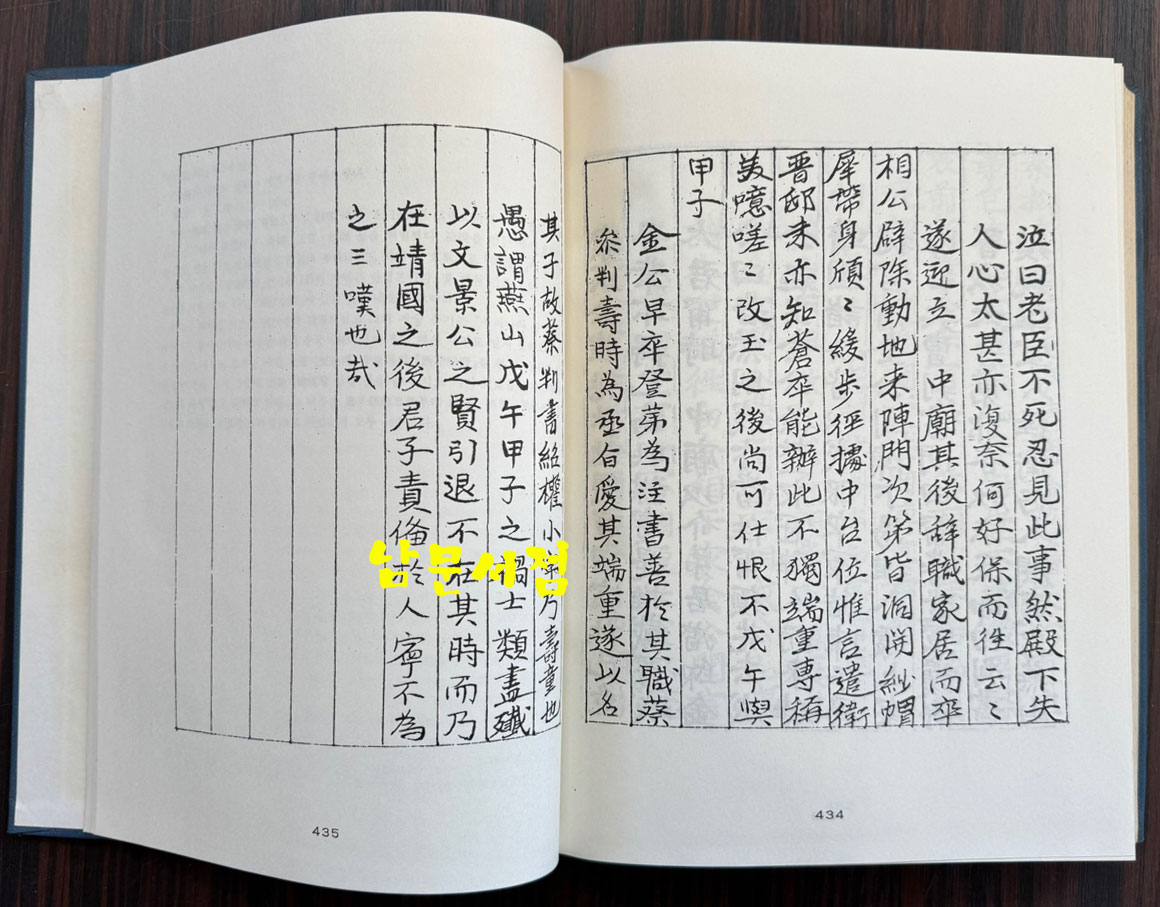 泣曰老臣不死忍見此事然殿下失
人心太甚亦復奈何好保而徃云〻
遂迎立 中廟其後辞職家居而卒
相公辟除動地来陣門次第皆洞開紗帽
犀帶身頎〻緩步徑據中台位惟言遣衛
晋邸未亦知蒼卒能辦此不獨端重專稱
美噫嗟〻改玉之後尚可仕恨不戊午與
甲子
金公早卒登第為注書善於其職蔡
参判壽時為丞旨愛其端重遂以名
其子故蔡判書紹權小字乃壽童也
愚謂燕山戊午甲子之禍士類盡殲
以文景公之賢引退不在其時而乃
在靖國之後君子責俻於人寧不為
之三嘆也哉
남문서점
435
434